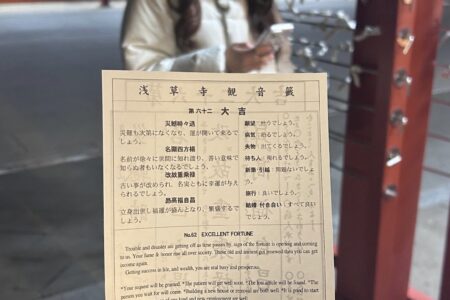 浅草寺観音籤
第六十二 大吉
災轗時々退
災難も次第になくなり、運が開いて来るで
しょう。
名顕四方揚
名前が徐々に世間に知れ渡り、善い意味で
知らぬ者もいなくなるでしょう。
改故重乗禄
古い事が改められ、名実ともに幸運が与え
られるでしょう。
昂高福自昌
立身出世し福運が盛んとなり、繁盛するで
しょう。
願望：叶うでしょう。
病気：治るでしょう。
失物：出てくるでしょう。
待ち人：現れるでしょう。
新築・引越：問題ないでしょ
う。
旅行：良いでしょう。
結婚・付き合い：すべて良い
でしょう。
No.62 EXCELLENT FORTUNE
Trouble and disaster are getting off as time passes by, sign of the fortune is opening and coming
to us. Your fame & honor rise all over society. Those old and ancient get renewed then you can get
income again.
Getting success in life, and wealth, you are just busy and prosperous.
*Your request will be granted. *The patient will get well soon. *The lost article will be found. *The
person you wait for will come. *Building a new house or removal are both well. *It is good to start